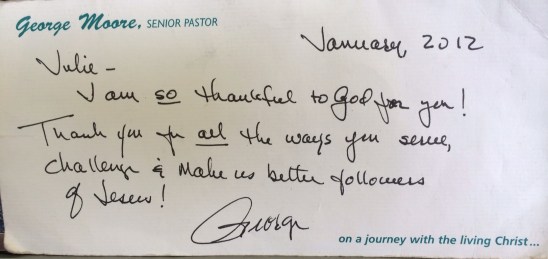 George Moore, SENIOR PASTOR
January 2012
Julie -
I am so thankful to God for you!
Thank you for all the ways you serve,
challenge & make us better followers
of Jesus!
George
on a journey with the living Christ...